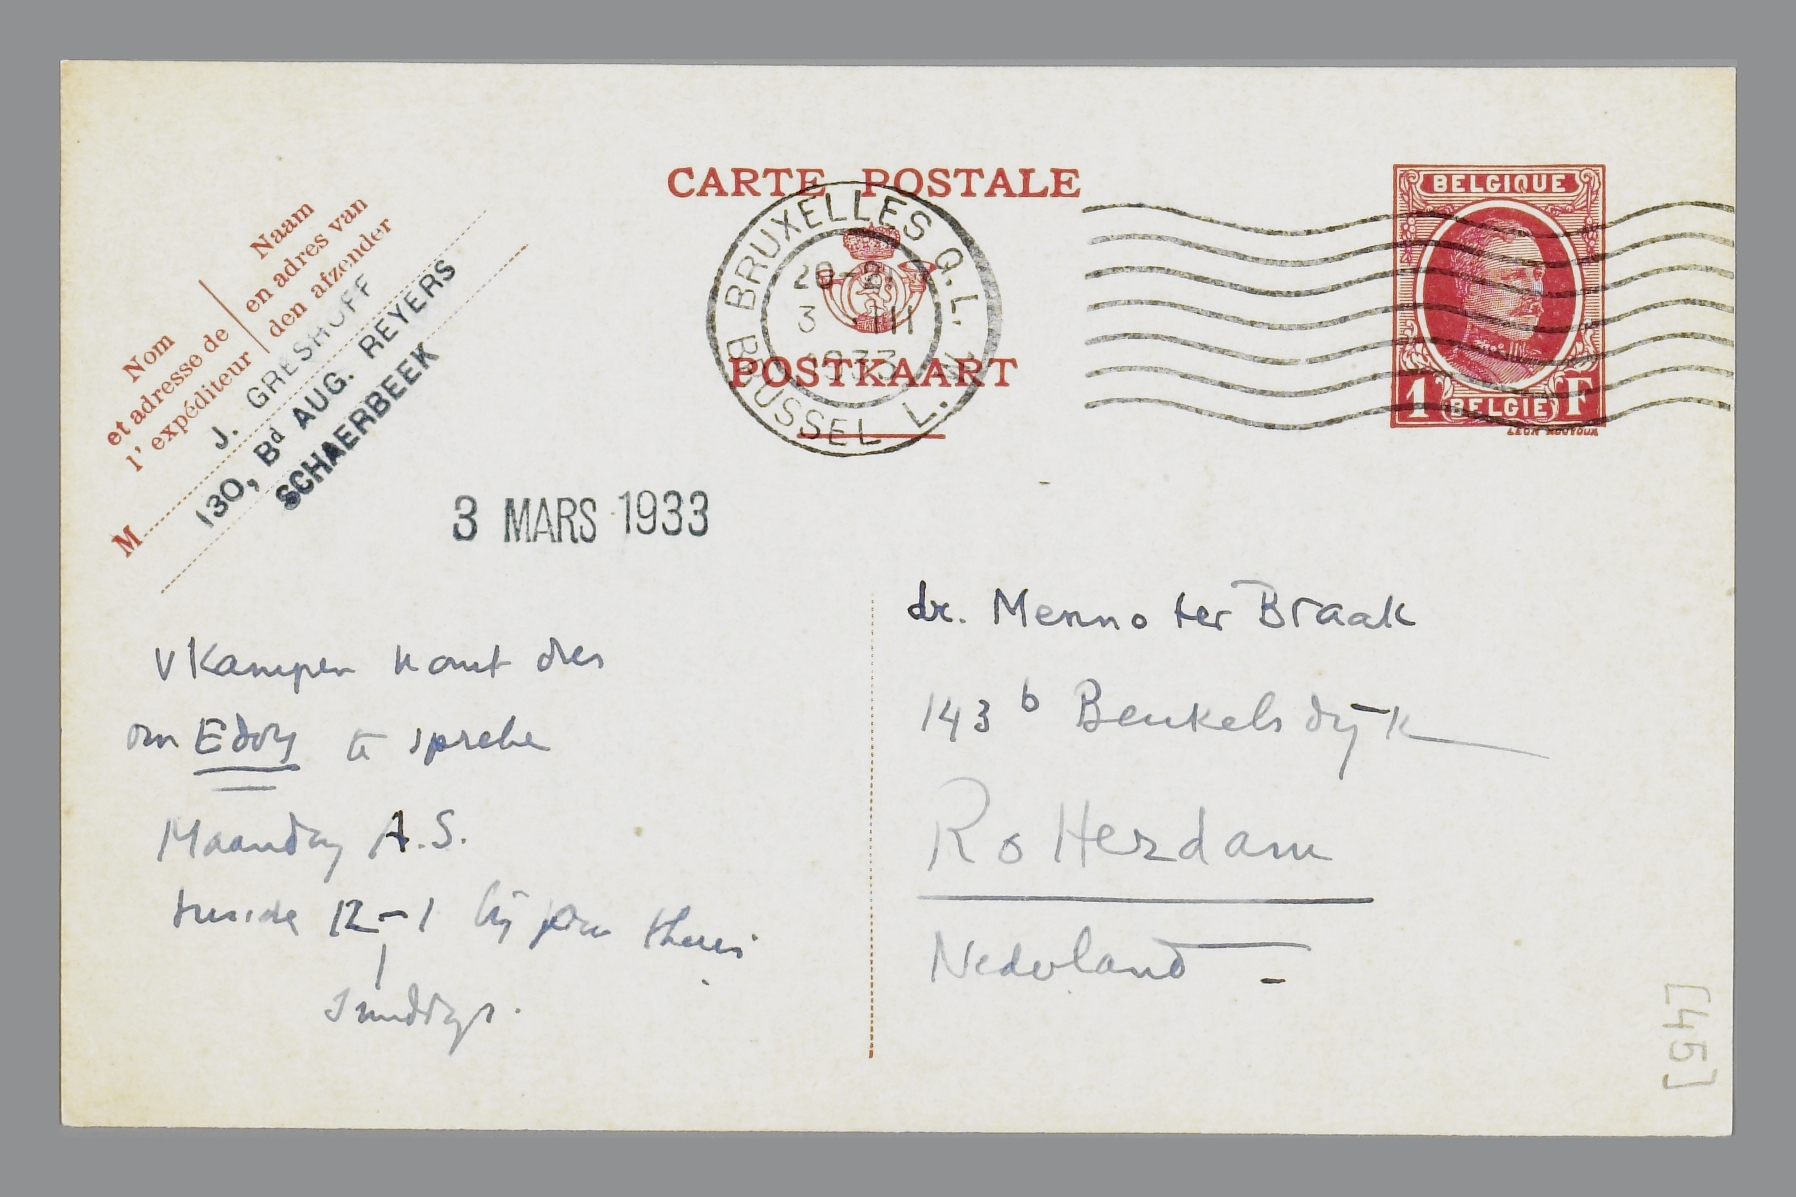 CARTE POSTALE
POSTKAART
Nom
et adresse de
l'expéditeur
Naam
en adres van
den afzender
M
J. GRESHOFF
130, Bd AUG. REYERS
SCHAERBEEK
BRUXELLES Q.L.
BRUSSEL L.
3 III
1933
BELGIQUE
1 BELGIË F
3 MARS 1933
v Kampen komt dus
om te spreken
Maandag A.S.
tusside 12-1 bij jou thuis
's middags.
dr. Menno ter Braak
143 b Beukelsdijk
Rotterdam
Nederland
[45]